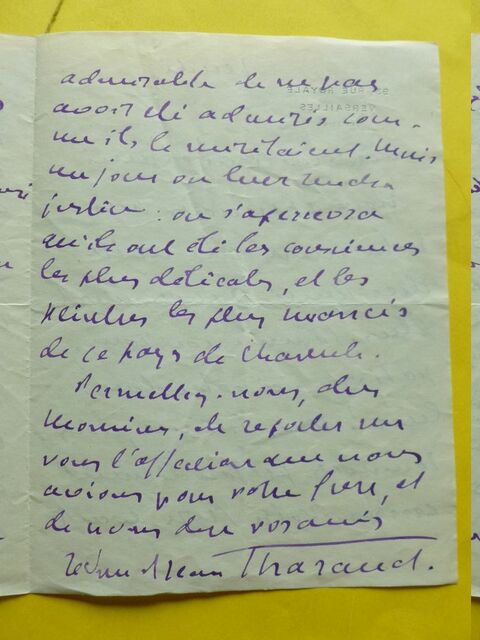 admirable de ne pas
avoir été admirés com-
me ils le méritaient. Mais
un jour on leur rendra
justice : on s'apercevra
qu'ils ont été les consciences
les plus délicates, et les
peintres les plus nuancés
de ce pays de
Permettez-nous, cher
Monsieur, de reporter sur
vous l'affection que nous
avions pour votre frère, et
de nous dire vos amis
Jérôme et Jean Tharaud.
RUE ROYALE
VERSAILLES